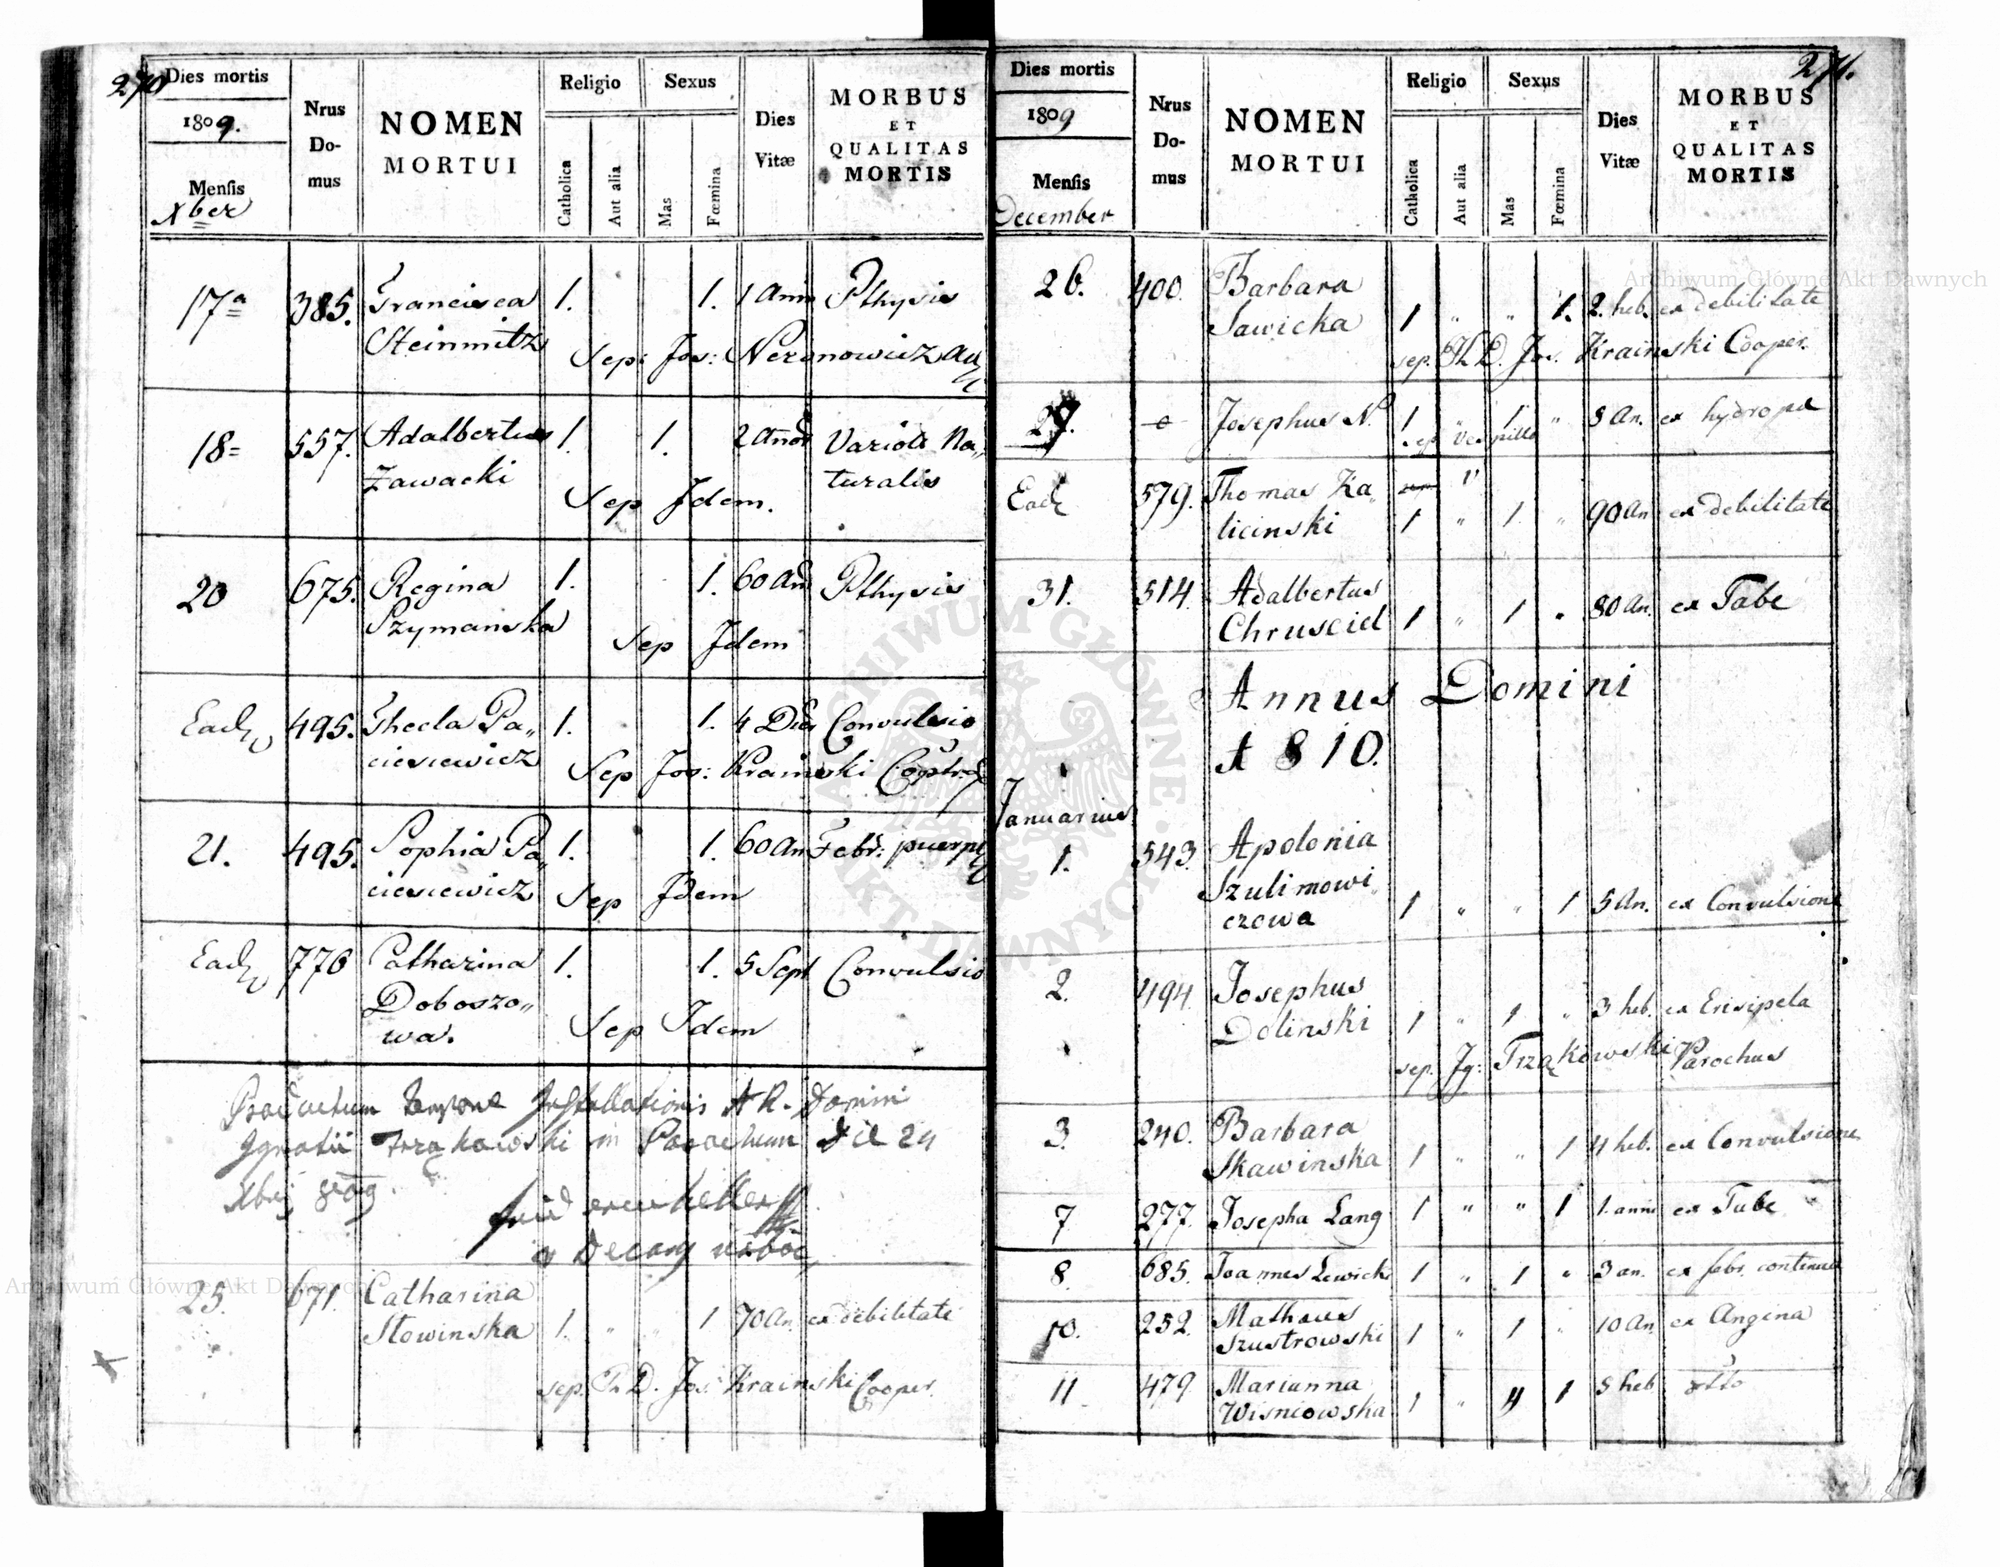 270
Dies mortis
1809.
Mensis
Xber
Nrus
Do-
mus
NOMEN
MORTUI
Religio
Catholica
Aut alia
Sexus
Mas
Fœmina
Dies
Vitæ
MORBUS
ET
QUALITAS
MORTIS
17a 385. Francisca 1. 1. 1 Anni Pthysis
Steinmitz
Sep: Jos: Neronowicz
18= 557. Adalbertus 1. 1. 2 Anor Variole Na„
Zawacki turalis
Sep Idem.
20 675. Regina 1. 1. 60 An Pthysis
Szymanska
Sep Idem
Ead 495. Thecla Pa„ 1. 1. 4 Dies Convulsio
ciesiewicz
Sep Jos: Krainski
21. 495. Sophia Pa„ 1. 1. 60 An Febr: puerp
ciesiewicz
Sep Idem
Ead 776 Catharina 1. 1. 5 Sept Convulsio
Doboszo„
wa.
Sep Idem
Productum tempore Installationis A R. Domini
Ignatii Trząkowski in Parochum die 24
Xbris 809.
25. 671. Catharina
Slowinska 1. " " 1 70 An. ex debilitate
sep. Th D. Jos: Krainski Cooper.
271.
Dies mortis
1809
Mensis
December
Nrus
Do-
mus
NOMEN
MORTUI
Religio
Catholica
Aut alia
Sexus
Mas
Fœmina
Dies
Vitæ
MORBUS
ET
QUALITAS
MORTIS
26. 400. Barbara
Sawicka 1 " " 1. 2. heb. ex debilitate
sep. Th D. Jos. Krainski Cooper.
27. Josephus N. 1 " 1 " 8 An. ex hydrope
sep Vespillo
Ead 579. Thomas Ka„
licinski 1 " 1 " 90 An ex debilitate
31. 514. Adalbertus
Chrusciel 1 " 1 " 80 An. ex Tabe
Annus Domini
1810.
Januarius
1. 543. Apolonia
Szulimowi„
czowa 1 " " 1 5 An. ex Convulsione
2. 494. Josephus
Dolinski 1 " 1 " 3 heb. ex Erisipela
sep. Jg: Trząkowski Parochus
3. 240. Barbara
Skawinska 1 " " 1 4 heb. ex Convulsione
7 277. Josepha Lang 1 " " 1 1. anni ex Tabe
8. 685. Joannes Lewicki 1 " 1 " 3 an. ex febr. continua
10. 252. Matheus
Szustrowski 1 " 1 " 10 An ex Angina
11 479. Marianna
Wisniowska 1 " " 1 5 heb
Archiwum Główne Akt Dawnych
Archiwum Główne Akt Dawnych
ARCHIWUM GŁÓWNE AKT DAWNYCH